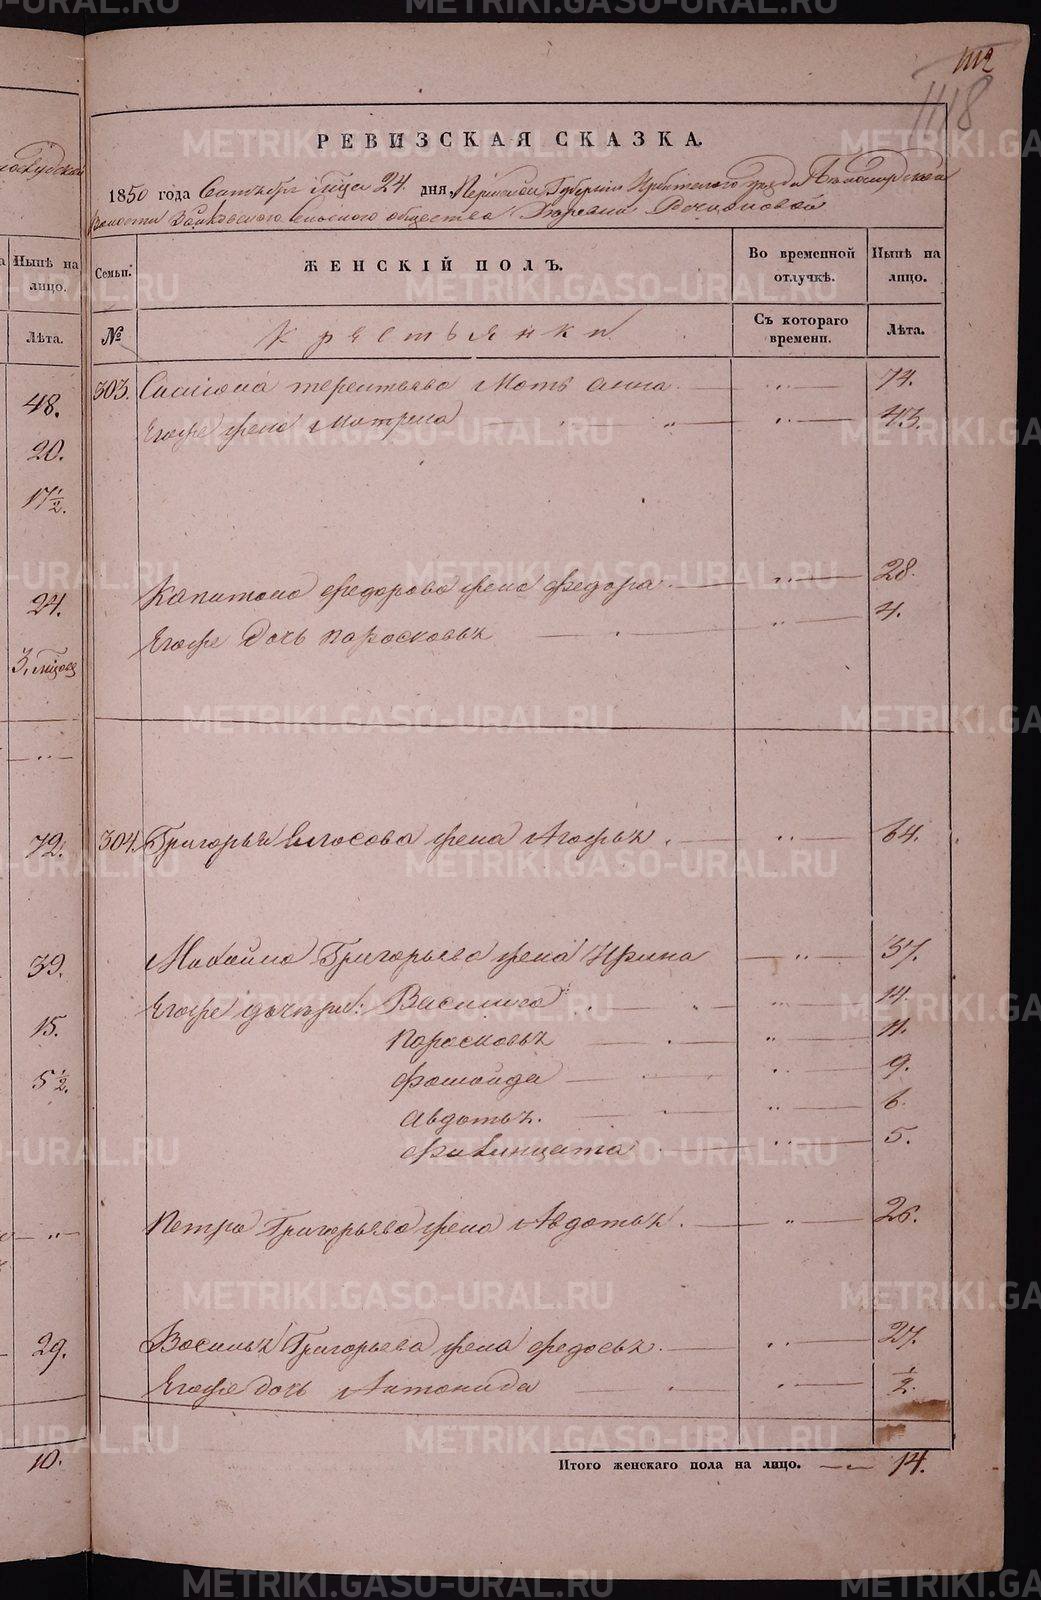 1112
1118
РЕВИЗСКАЯ СКАЗКА.
1850 года Сентября м̃ца 24 дня, Пермской Губернии Ирбитского уезда
Волости Зайковского Сельского общества Деревни
Ныне на лицо.
Семьи.
ЖЕНСКІЙ ПОЛЪ.
Во временной отлучкѣ.
Нынѣ на лицо.
Лѣта.
№
Крестьянки
Съ котораго времени.
Лѣта.
48.
303. терентьева Мать анна 74.
Егоже жена Матрена 43.
20.
17 1/2.
24.
Капитона федорова жена федора 28.
Егоже Дочь Парасковья 4.
3. мѣсяц
72.
304. Григорья Власова жена Агафья 64.
39.
Михайла Григорьева жена Ирина 37.
Егоже дочери: Василиса 14.
15.
Парасковья 11.
5 1/2.
фотинья 9.
Авдотья. 6.
5.
Петра Григорьева жена Авдотья 26.
29.
Василья Григорьева жена федосья 27.
Егоже дочь Антонида 1/2.
10.
Итого женскаго пола на лицо. 14.
METRIKI.GASO-URAL.RU